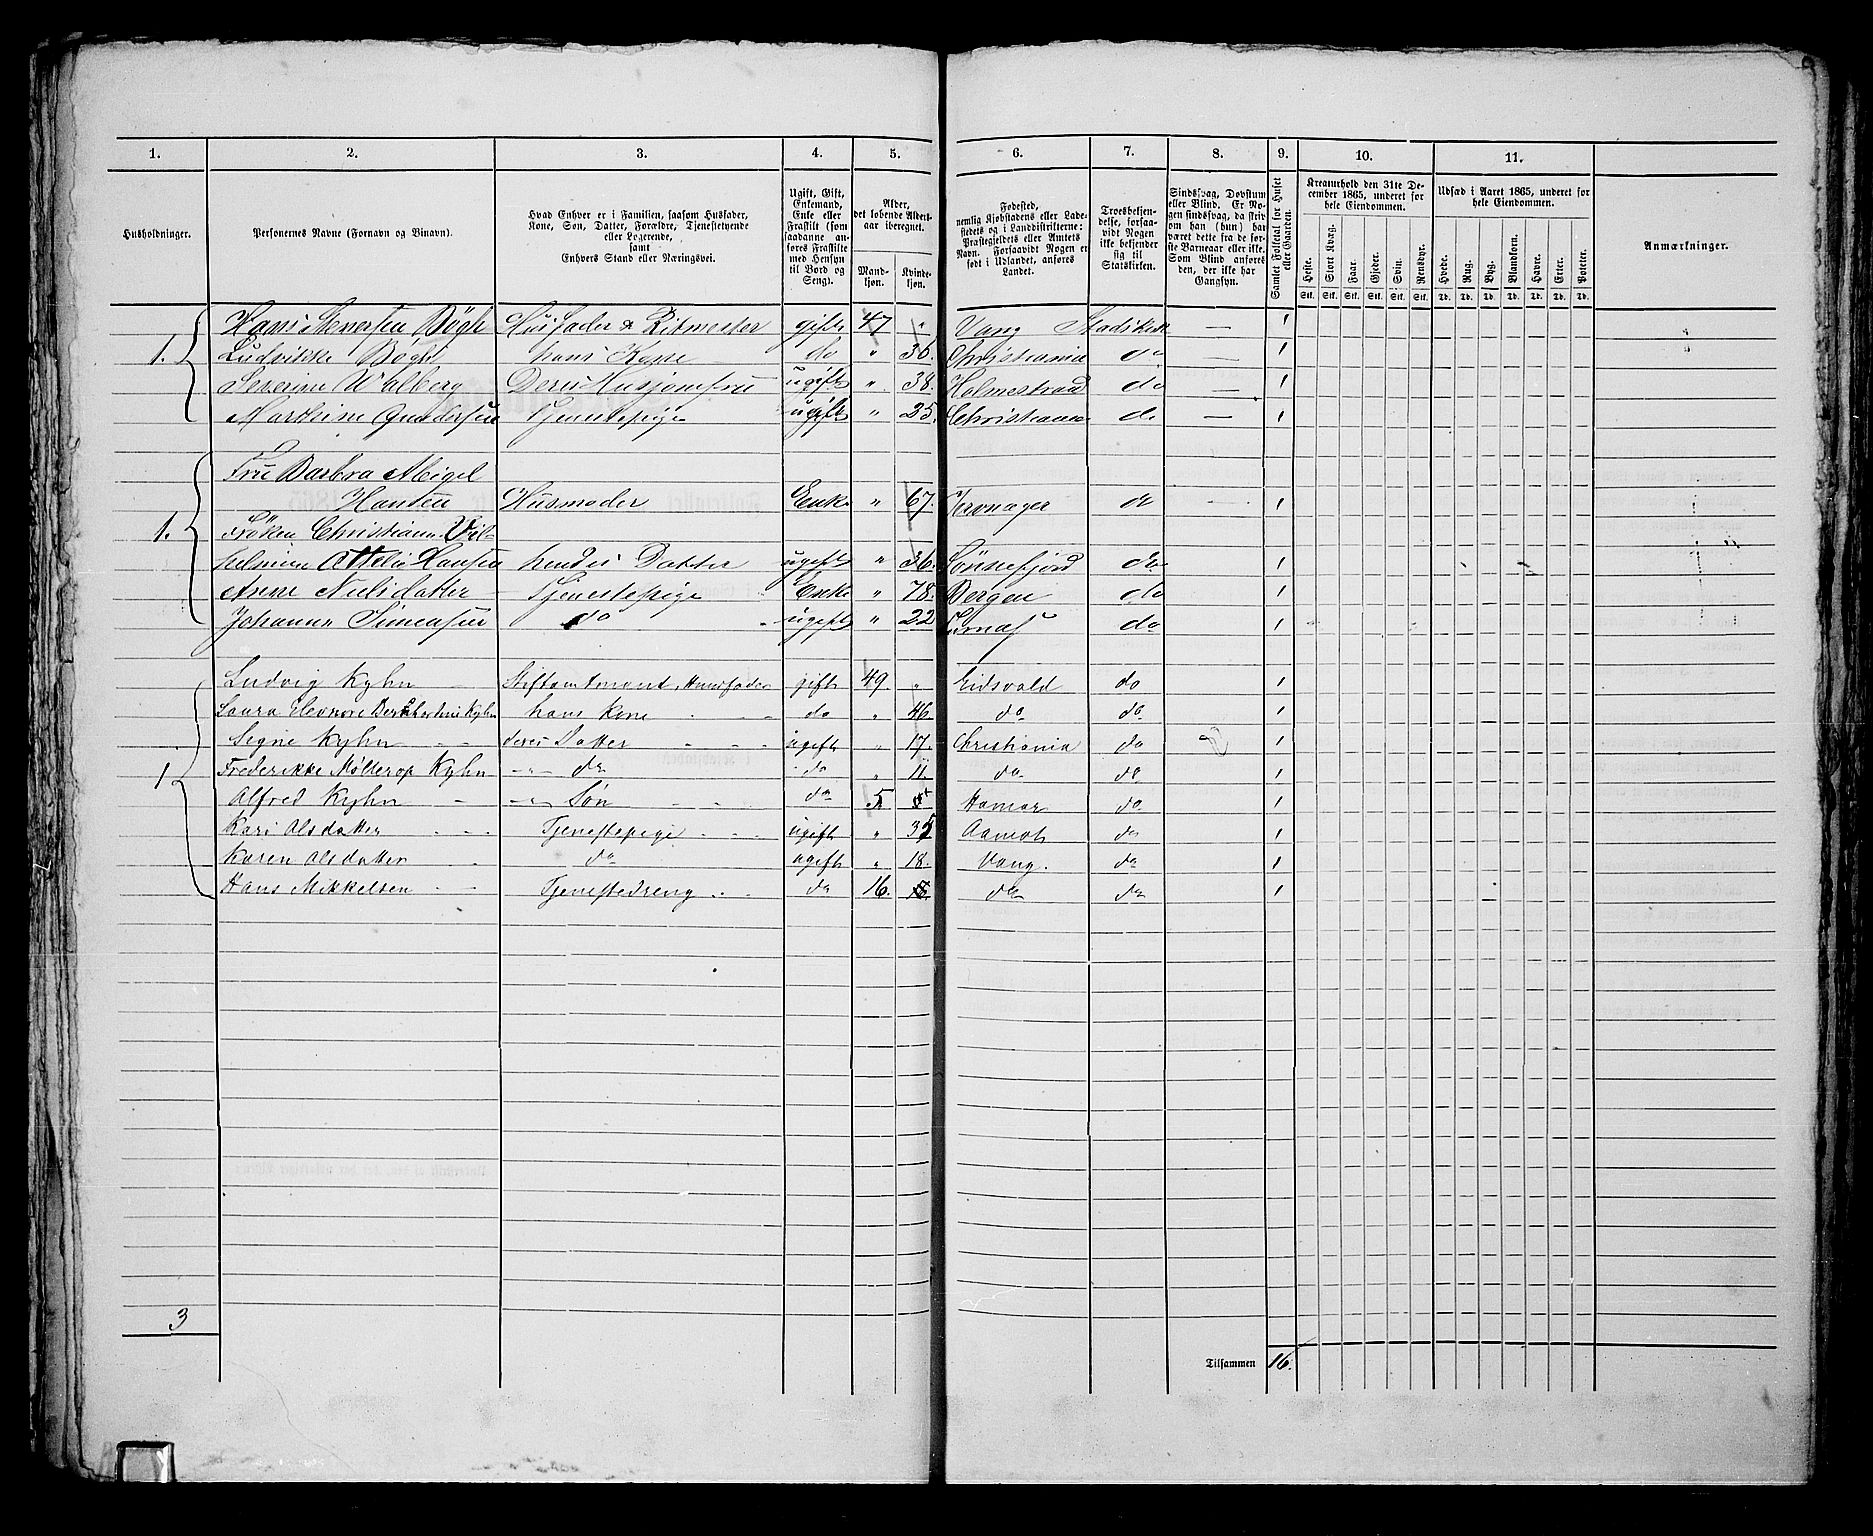 1. 2. 3. 4. 5. 6. 7. 8. 9. 10. 11.
Husholdninger.
Personernes Navne (Fornavn og Binavn).
Hvad Enhver er i Familien, saasom Husfader,
Kone, Søn, Datter, Forældre, Tjenestetyende
eller Logerende,
samt
Enhvers Stand eller Næringsvei.
Ugift, Gift,
Enkemand,
Enke eller
Fraskilt (som
saadanne an-
føres Fraskilte
med Hensyn
til Bord og
Seng).
Alder,
det løbende Alders-
aar iberegnet.
Mand-
kjøn.
Kvinde-
kjøn.
Fødested,
nemlig Kjøbstadens eller Lade-
stedets og i Landdistrikterne:
Præstegjeldets eller Amtets
Navn. Forsaavidt Nogen er
født i Udlandet, anføres
Landet.
Troesbekjen-
delse, forsaa-
vidt Nogen
ikke bekjender
sig til
Statskirken.
Sindssvag, Døvstum
eller Blind. Er No-
gen sindssvag, da skriv
om han (hun) har
været dette fra de før-
ste Barneaar eller ikke.
Som Blind anføres
den, der ikke har
Gangsyn.
Samlet Folketal for Huset
eller Gaarden.
Kreaturhold den 31te De-
cember 1865, underet for
hele Eiendommen.
Heste. Stort Kvæg. Faar. Gjeder. Svin. Rensdyr.
Stk. Stk. Stk. Stk. Stk. Stk.
Udsæd i Aaret 1865, underet for
hele Eiendommen.
Hvede. Rug. Byg. Blandkorn. Havre. Erter. Poteter.
Td. Td. Td. Td. Td. Td. Td.
Anmærkninger.
Hans Stenersen Bøgh Husfader & Ritmester gift 47 " Vang Statskirk — 1
1. Ludvikke Bøgh hans Kone do " 36. Christiania do — 1
Severine Walberg Deres Husjomfru ugift " 38. Holmestrand do — 1
Marthine Gundersen Tjenestepige ugift " 25. Christiania do — 1
Fru Barbra Abigel
Hansen Husmoder Enke " 67. do 1
1. Frøken Christiane Vil-
helmine Hansen hendes Datter ugift " 36. Søndfjord do 1
Anne Nielsdatter Tjenestepige Enke " 78. Bergen do 1
Johanne Simensen do ugift " 22 do 1
Ludvig Kyhn Stiftamtmand, Huusfader gift 49. " Eidsvold do 1
Laura Eleonore Kyhn hans Kone do " 46. do do 1
Signe Kyhn deres Datter ugift " 17. Christiania do 1
1 Frederikke Møllerop Kyhn — " — do do " 11. do do 1
Alfred Kyhn — " — Søn do 5 Hamar do 1
Kari Olsdatter Tjenestepige ugift " 35 Aamot do 1
Karen Olsdatter do ugift " 18. Vang. do 1
Hans Mikkelsen Tjenestedreng do 16. do do 1
3
Tilsammen 16.